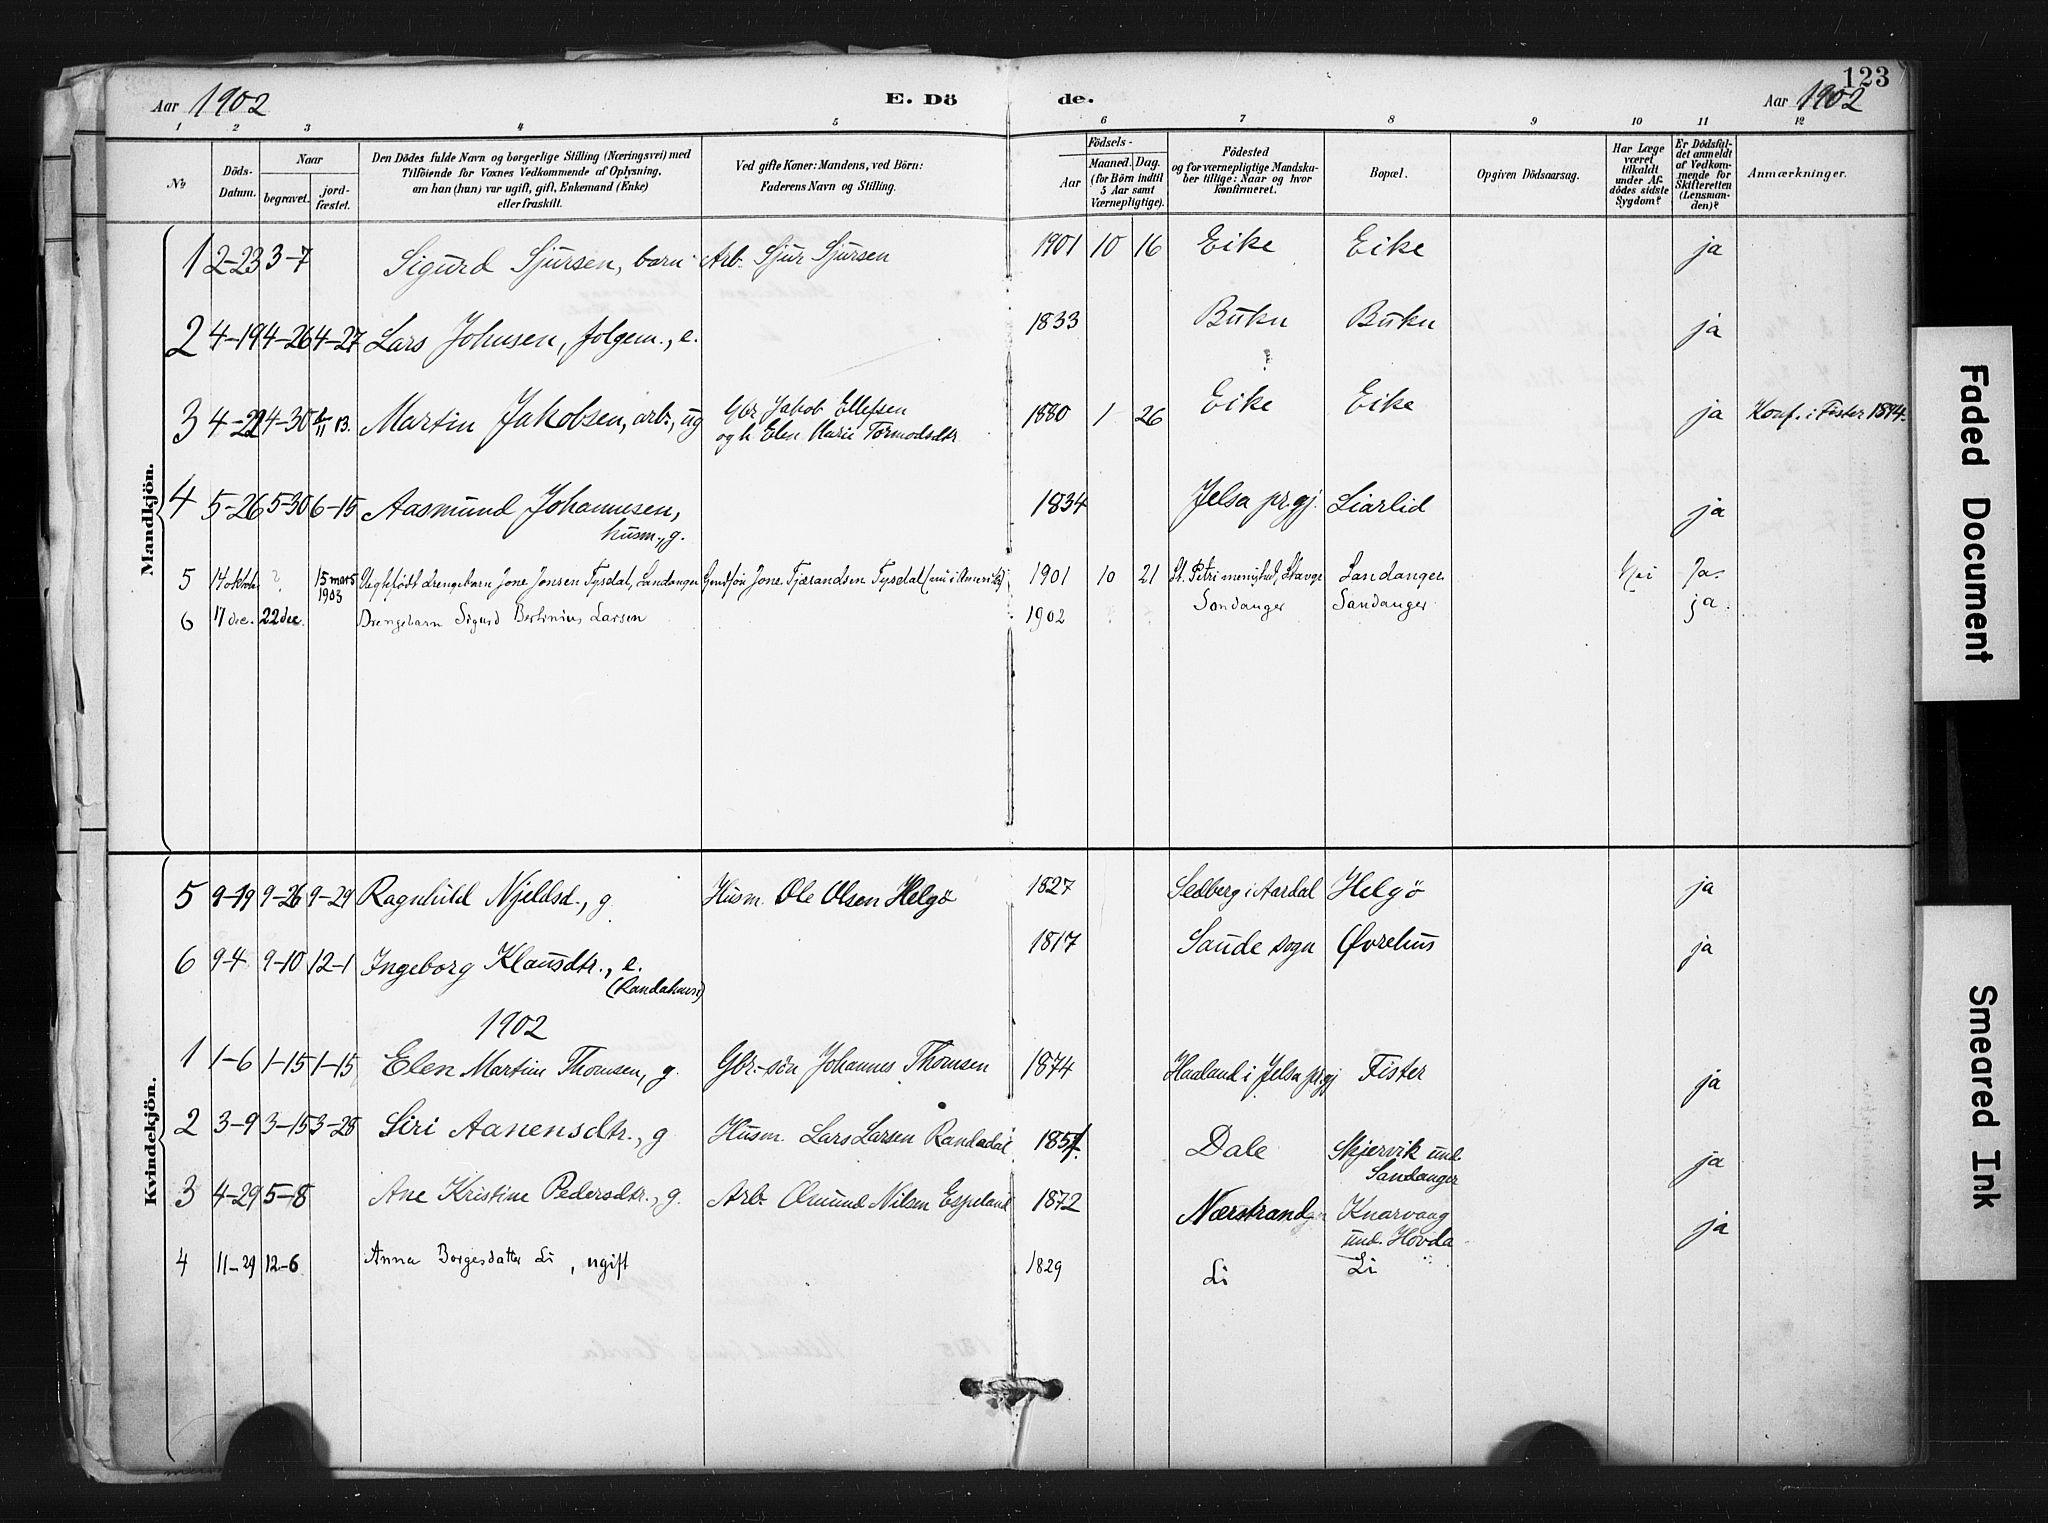 123
Aar 1902 E. Dö de. Aar 1902
1 2 3 4 5 6 7 8 9 10 11 12
No Döds-Datum. Naar begravet. jord-fæstet. Den Dödes fulde Navn og borgerlige Stilling (Næringsvei) med Tilföiende for Voxnes Vedkommende af Oplysning, om han (hun) var ugift, gift, Enkemand (Enke) eller fraskilt. Ved gifte Koner: Mandens, ved Börn: Faderens Navn og Stilling. Födsels- Aar Maaned. Dag. (for Börn indtil 5 Aar samt Værnepligtige). Födested og for værnepligtige Mandskaber tillige: Naar og hvor Konfirmeret. Bopæl. Opgiven Dödsaarsag. Har Læge været tilkaldt under Afdödes sidste Sygdom? Er Dödsfaldet anmeldt af Vedkommende for Skifteretten (Lensmanden)? Anmærkninger.
Mandkjön.
1 2-23 3-7 Sigurd Sjursen, barn Arb. Sjur Sjursen 1901 10 16 Eike Eike ja
2 4-19 4-26 4-27 Lars Johnsen, folgem., e. 1833 Bukn Bukn ja
3 4-22 4-30 13. Martin Jakobsen, arb., ug Gbr Jakob Ellefsen 1880 1 26 Eike Eike ja Konf. i Fister 1894.
og h. Elen Marie Tormodsdtr
4 5-26 5-30 6-15 Aasmund Johannesen, 1834 Jelsa pr.gj. Liarlid ja
husm., g.
5 14 oktober ? 15 mars 1903 Uegtefødt drengebarn Jone Jonsen Tysdal, Sandanger Jone Tjærandsen Tysdal (nu i Amerika) 1901 10 21 St. Petri menighed, Stavgr Sandanger Nei Ja.
6 17 dec. 22 dec. Drengebarn Sigurd Bertinius Larsen 1902 ? ? Sandanger Sandanger ja.
Kvindekjön.
5 9-19 9-26 9-29 Ragnhild Njeldsd., g Husm. Ole Olsen Helgö 1827 Sedberg i Aardal Helgö ja
6 9-4 9-10 12-1 Ingeborg Klausdtr., e. 1817 Saude sogn Øvrehus ja
(Randahuus)
1902
1 1-6 1-15 1-15 Elen Martine Thomsen, g. Gbr.-sön Johannes Thomsen 1874 Haaland i Jelsa pr.gj Fister ja
2 3-9 3-15 3-28 Siri Aanensdtr., g Husm. Lars Larsen Randadal Dale Skjervik und. Sandanger ja
3 4-29 5-8 Ane Kristine Pedersdtr., g. Arb. Omund Nilsen Espeland 1872 Nærstrand Knarvaag und. Hovda ja
4 11-29 12-6 Anna Borgesdatter Li, ugift 1829 Li Li
Faded Document
Smeared Ink